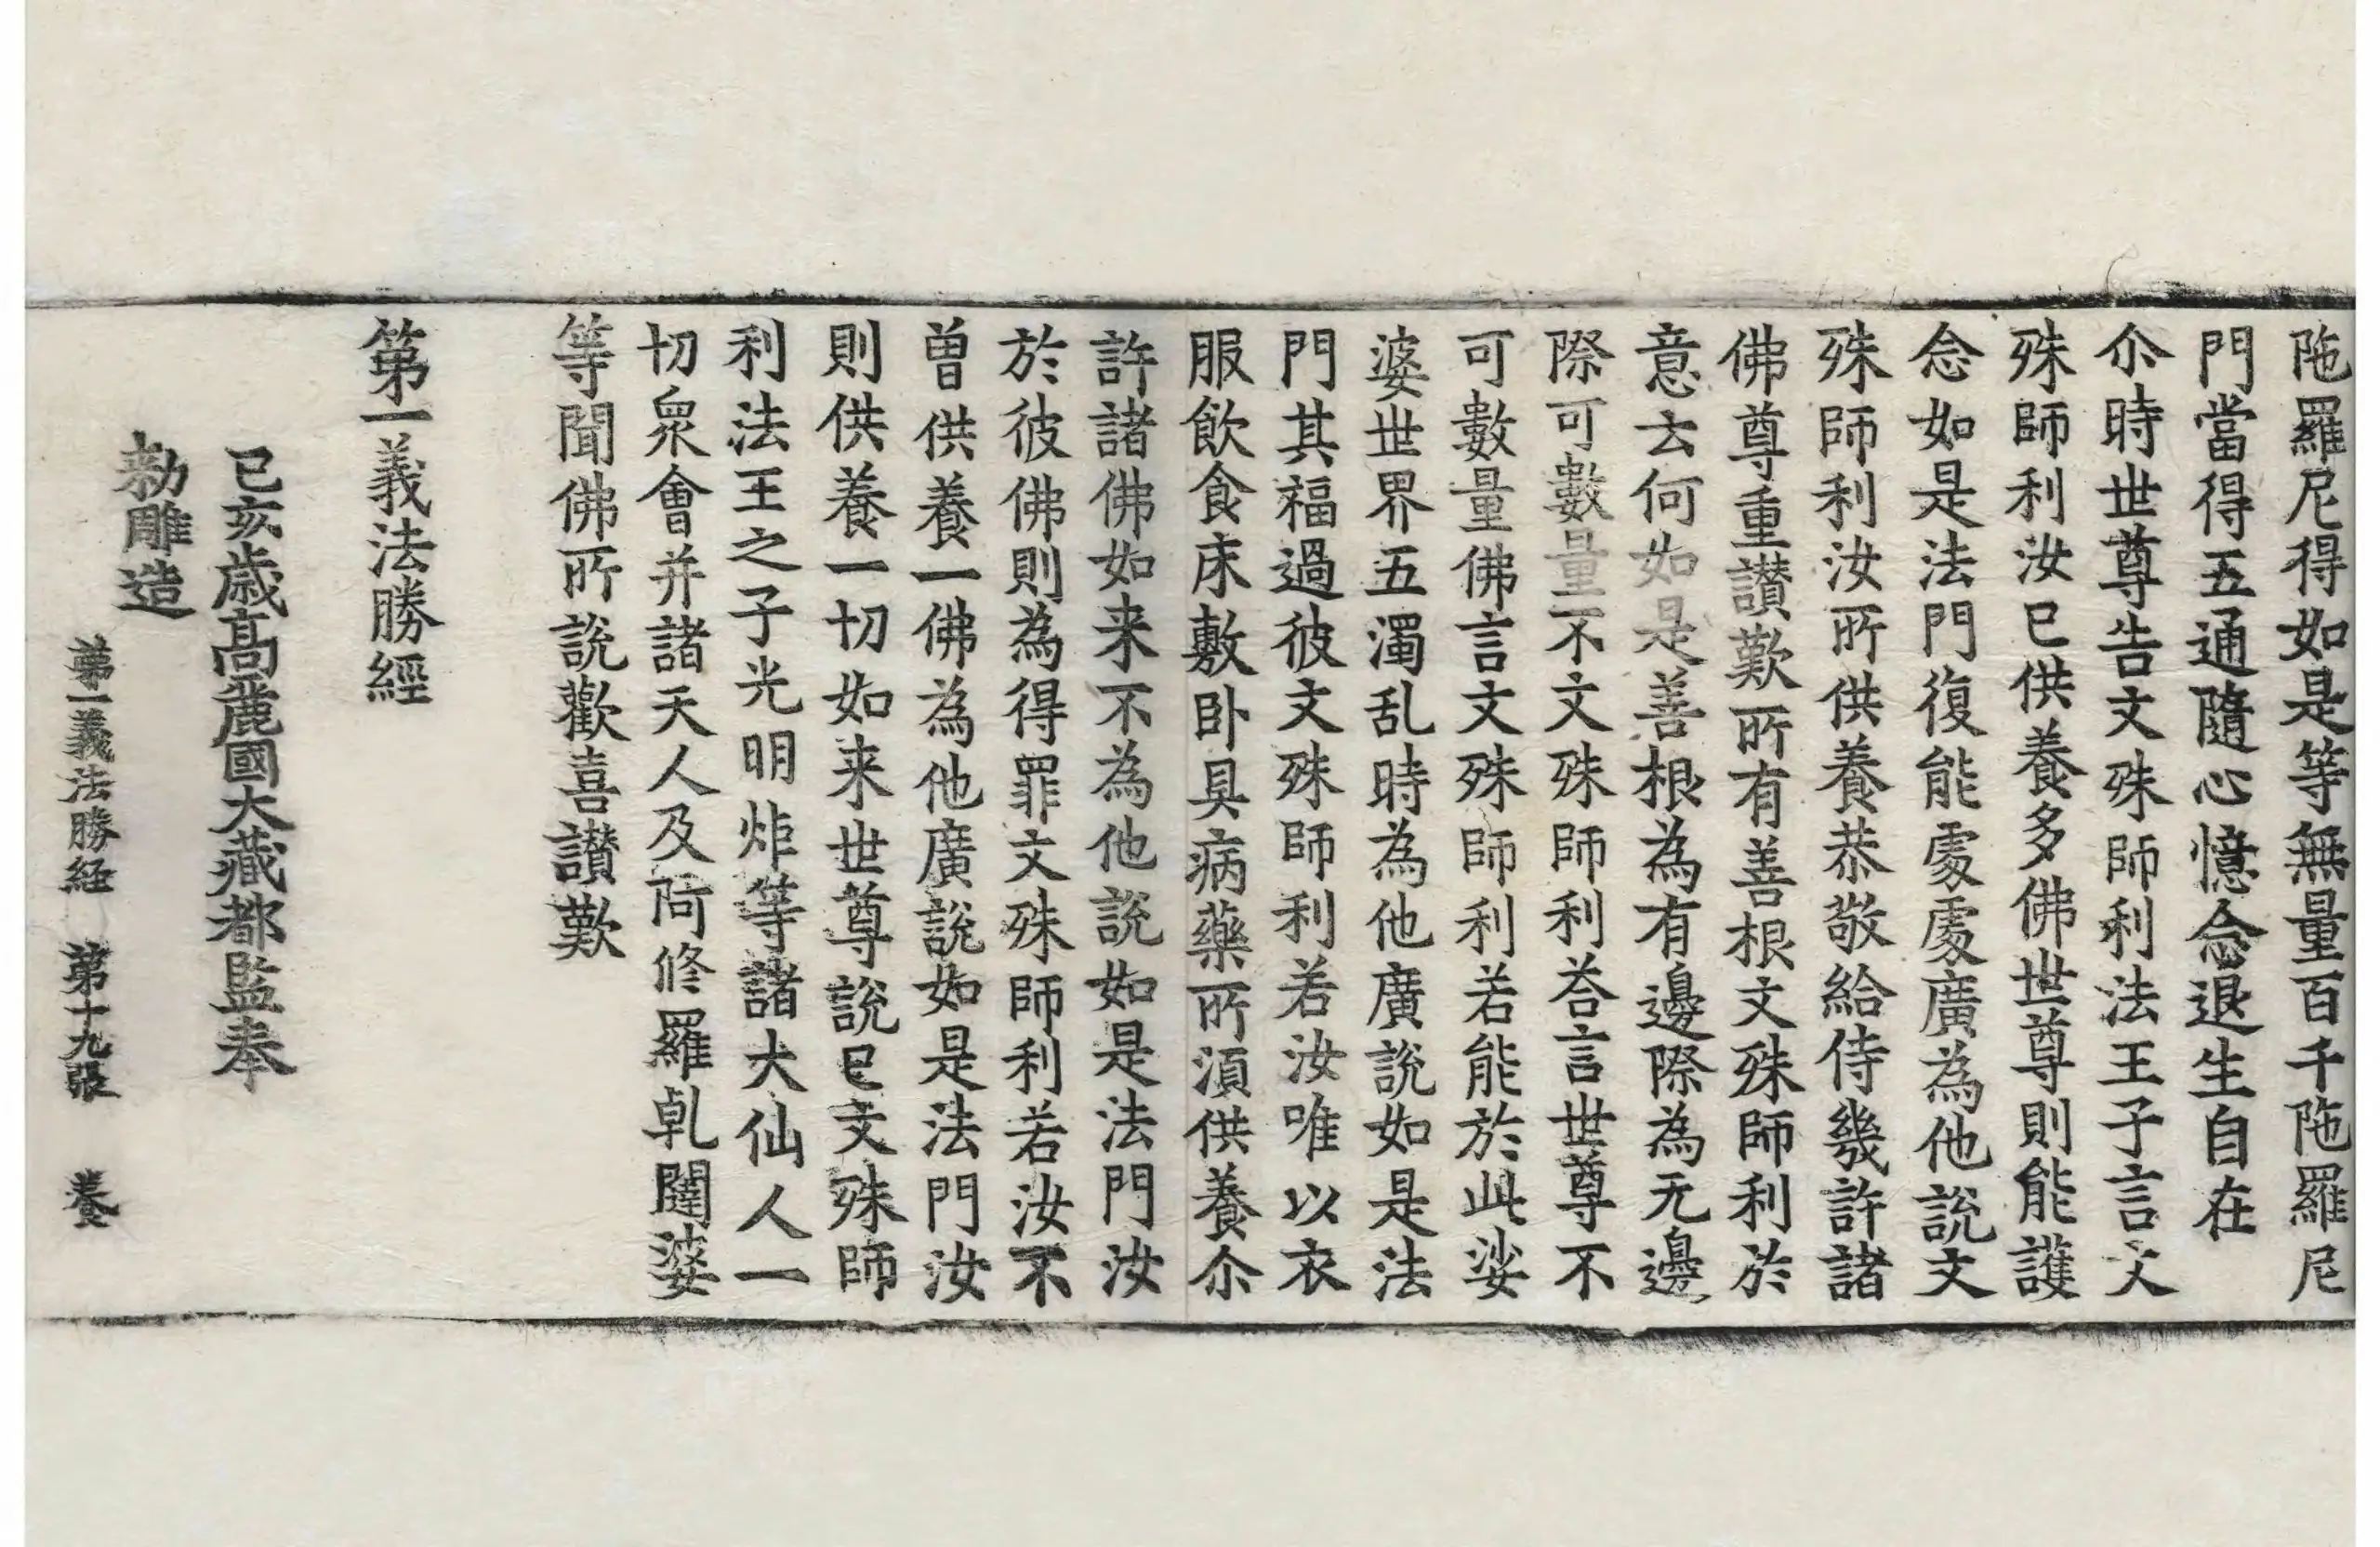 陁羅尼得如是等無量百千陁羅尼
門當得五通隨心憶念退生自在
尒時世尊告文殊師利法王子言文
殊師利汝已供養多佛世尊則能護
念如是法門復能處處廣為他說文
殊師利汝所供養恭敬給侍幾許諸
佛尊重讃歎所有善根文殊師利於
意云何如是善根為有邊際為无邊
際可數量不文殊師利荅言世尊不
可數量佛言文殊師利若能於此娑
婆世界五濁乱時為他廣說如是法
門其福過彼文殊師利若汝唯以衣
服飲食床敷卧具病藥所湏供養尒
許諸佛如来不為他說如是法門汝
於彼佛則為得罪文殊師利若汝不
曾供養一佛為他廣說如是法門汝
則供養一切如来世尊說已文殊師
利法王之子光明炬等諸大仙人一
切衆會并諸天人及阿修羅乹闥婆
等聞佛所說歡喜讃歎
第一義法勝經
己亥歳高麗國大藏都監奉
勑雕造
第一義法勝経 第十九張 養